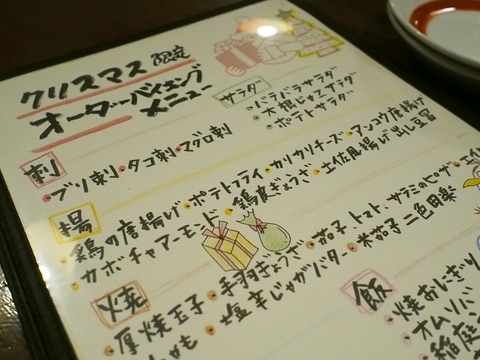 クリスマス 限定
オーダーバイキング
メニュー
サラダ
・バラバラサラダ
・大根じゃこサラダ
・ポテトサラダ
刺
・ブリ刺・タコ刺・マグロ刺
揚
・鶏の唐揚げ・ポテトフライ・カリカリチーズ・アンコウ唐揚げ
・カボチャアーモンド・鶏皮ぎょうざ・土佐風揚げ出し豆腐
焼
・厚焼玉子・手羽ぎょうざ・茄子、トマト、サラミのピザ
・塩辛じゃがバター・米茄子二色田楽
飯
・焼おにぎり
・オムソバ
・稲庭